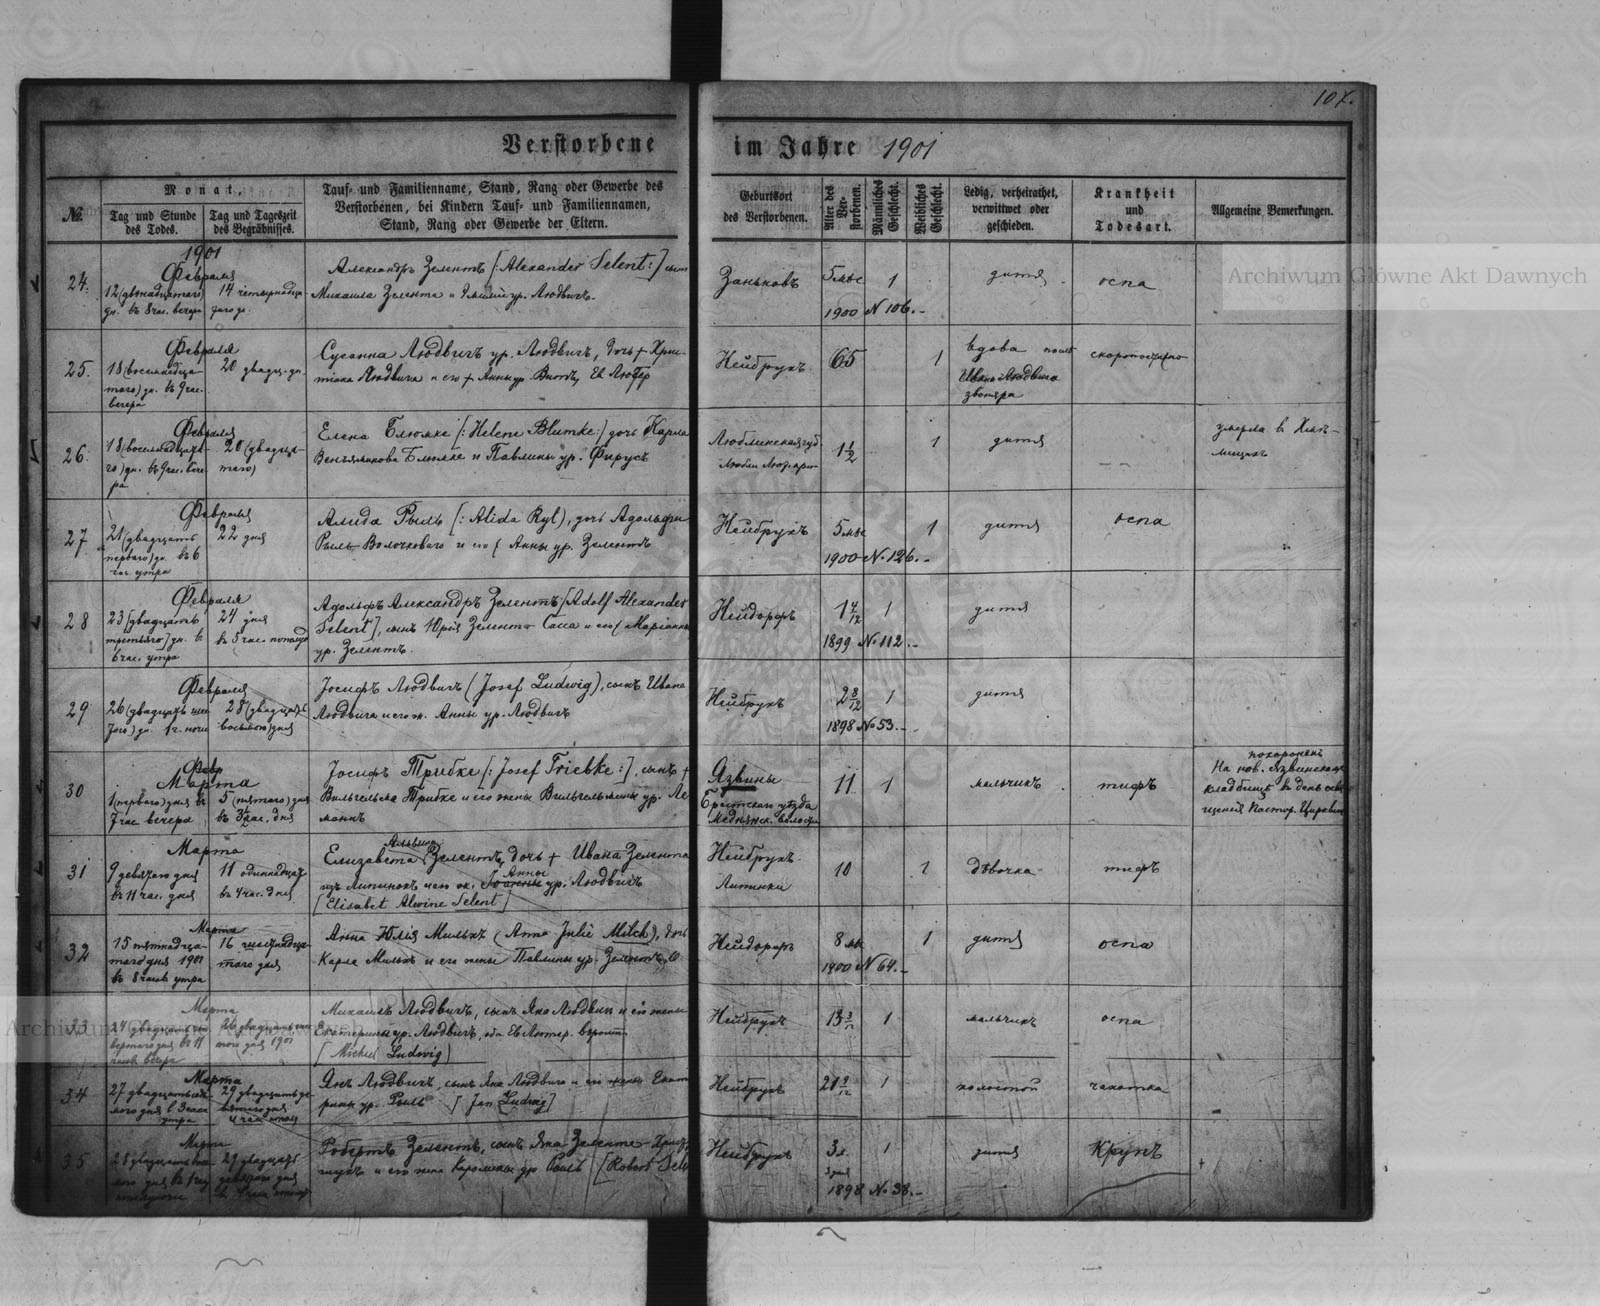 107.
Verstorbene im Jahre 1901
№.
Monat,
Tag und Stunde des Todes.
Tag und Tageszeit des Begräbnisses.
Tauf- und Familienname, Stand, Rang oder Gewerbe des
Verstorbenen, bei Kindern Tauf- und Familiennamen,
Stand, Rang oder Gewerbe der Eltern.
Geburtsort
des Verstorbenen.
Alter des Verstorbenen.
Männliches Geschlecht.
Weibliches Geschlecht.
Ledig, verheirathet,
verwittwet oder
geschieden.
Krankheit
und
Todesart.
Allgemeine Bemerkungen.
1901
24.
Февраля
12 (двѣнадцатаго)
дн. въ 8 час. вечера
14 четырнадца-
таго дн.
Александръ Зелентъ [: Alexander Selent :] сынъ
Михаила Зелента и ур. Людвигъ.
Заньковъ
5 мѣс
1
1900 № 106.-
дитя
оспа
25.
Февраля
18 (восемнадца-
таго) дн. въ 9 час.
вечера
20 двадц. дн.
Сусанна Людвигъ ур. Людвигъ, дочь + Хрис-
тіана Людвига и его + Анны ур. Витъ, Ев. Лютер
Нейбрукъ.
65
1
вдова послѣ
Ивана Людвига
звонаря
скоропостижно
26.
Февраля
18 (восемнадцата-
го) дн. въ 9 час. вече-
ра
20 (двадца-
таго)
Елена Блюмке [: Helene Blumke :] дочь Карла
Веньяминова Блюмке и Павлины ур. Фирусъ
Люблинская губ.
1 1/2
1
дитя
умерла в
27
Февраля
21 (двадцать
перваго) дн. въ 6
час. утра
22 дня
Алида Рыль [: Alida Ryl), дочь Адольфа
Рыль-Волочковаго и его / Анны ур. Зелентъ
Нейбрукъ
5 мѣс
1
1900 № 126.-
дитя
оспа
28
Февраля
23 [двадцать
третьяго] дн. въ
6 час. утра
24 дня
въ 5 час. пополуд
Адольфъ Александръ Зелентъ [Adolf Alexander
Selent], сынъ Юрія Зелента Сасса и его / Маріанны
ур. Зелентъ.
Нейдорфъ
1 4/12
1
1899 № 112.-
дитя
29
Февраля
26 (двадцать шес
таго) дн. 1 г. ночи
28 (двадцать
восьмаго) дня
Іосифъ Людвигъ (Josef Ludwig), сынъ Ивана
Людвига и его ж. Анны ур. Людвигъ
Нейбрукъ
2 8/12
1
1898 № 53.-
дитя
30
Февр
Марта
1 (перваго) дня въ
7 час вечера
5 (пятаго) дня
въ 3 1/2 час. дня
Іосифъ Трибке [: Josef Triebke :], сынъ +
Вильгельма Трибке и его жены Вильгельмины ур. Ле
манъ
Язвины
Брестскаго уѣзда
Меднянск. волости
11
1
мальчикъ
тифъ
похороненъ
На нов. Язвинскомъ
кладбищѣ въ день освя
щенія Пастор.
31
Марта
9 девятаго дня
въ 11 час. дня
11 одиннадцат
въ 4 час. дня
Альвина
Елизавета Зелентъ, дочь + Ивана Зелента
изъ Липинокъ и его ж. Анны ур. Людвигъ
[Elisabet Alwine Selent]
Нейбрукъ
Липинки
10
1
дѣвочка
тифъ
32
Марта
15 пятнадца-
таго дня 1901
въ 8 часовъ утра
16 шестнадца-
таго дня
Анна Юлія Мильхъ (Anna Julie Milch), дочь
Карла Мильхъ и его жены Павлины ур. Зелентъ
Нейдорфъ
8 мѣс
1
1900 № 64.-
дитя
оспа
33
Марта
24 двадцать чет
вертаго дня въ 11
часовъ вечера
26 двадцать шес
таго дня 1901
Михаилъ Людвигъ, сынъ Яна Людвига и его жены
Екатерины ур. Людвигъ, оба Ев. Лютер. вѣроисп
[Michael Ludwig)
Нейбрукъ
13 3/12
1
мальчикъ
оспа
34
Марта
27 двадцать седь
маго дня в 3 часа
утра
29 двадцать де-
вятаго дня
Янъ Людвигъ, сынъ Яна Людвига и его жены Екате
рины ур. Рыль [Jan Ludwig]
Нейбрукъ
21 9/12
1
холостой
чахотка
35
Марта
28 двадцать вось
29 двадцать
девятаго дня
Робертъ Зелентъ, сынъ Яна Зелента-
и его жены Каролины ур Рыль [Robert Sele
Нейбрукъ
3 л.
1
1898 № 38.-
дитя
Крупъ
Archiwum Główne Akt Dawnych